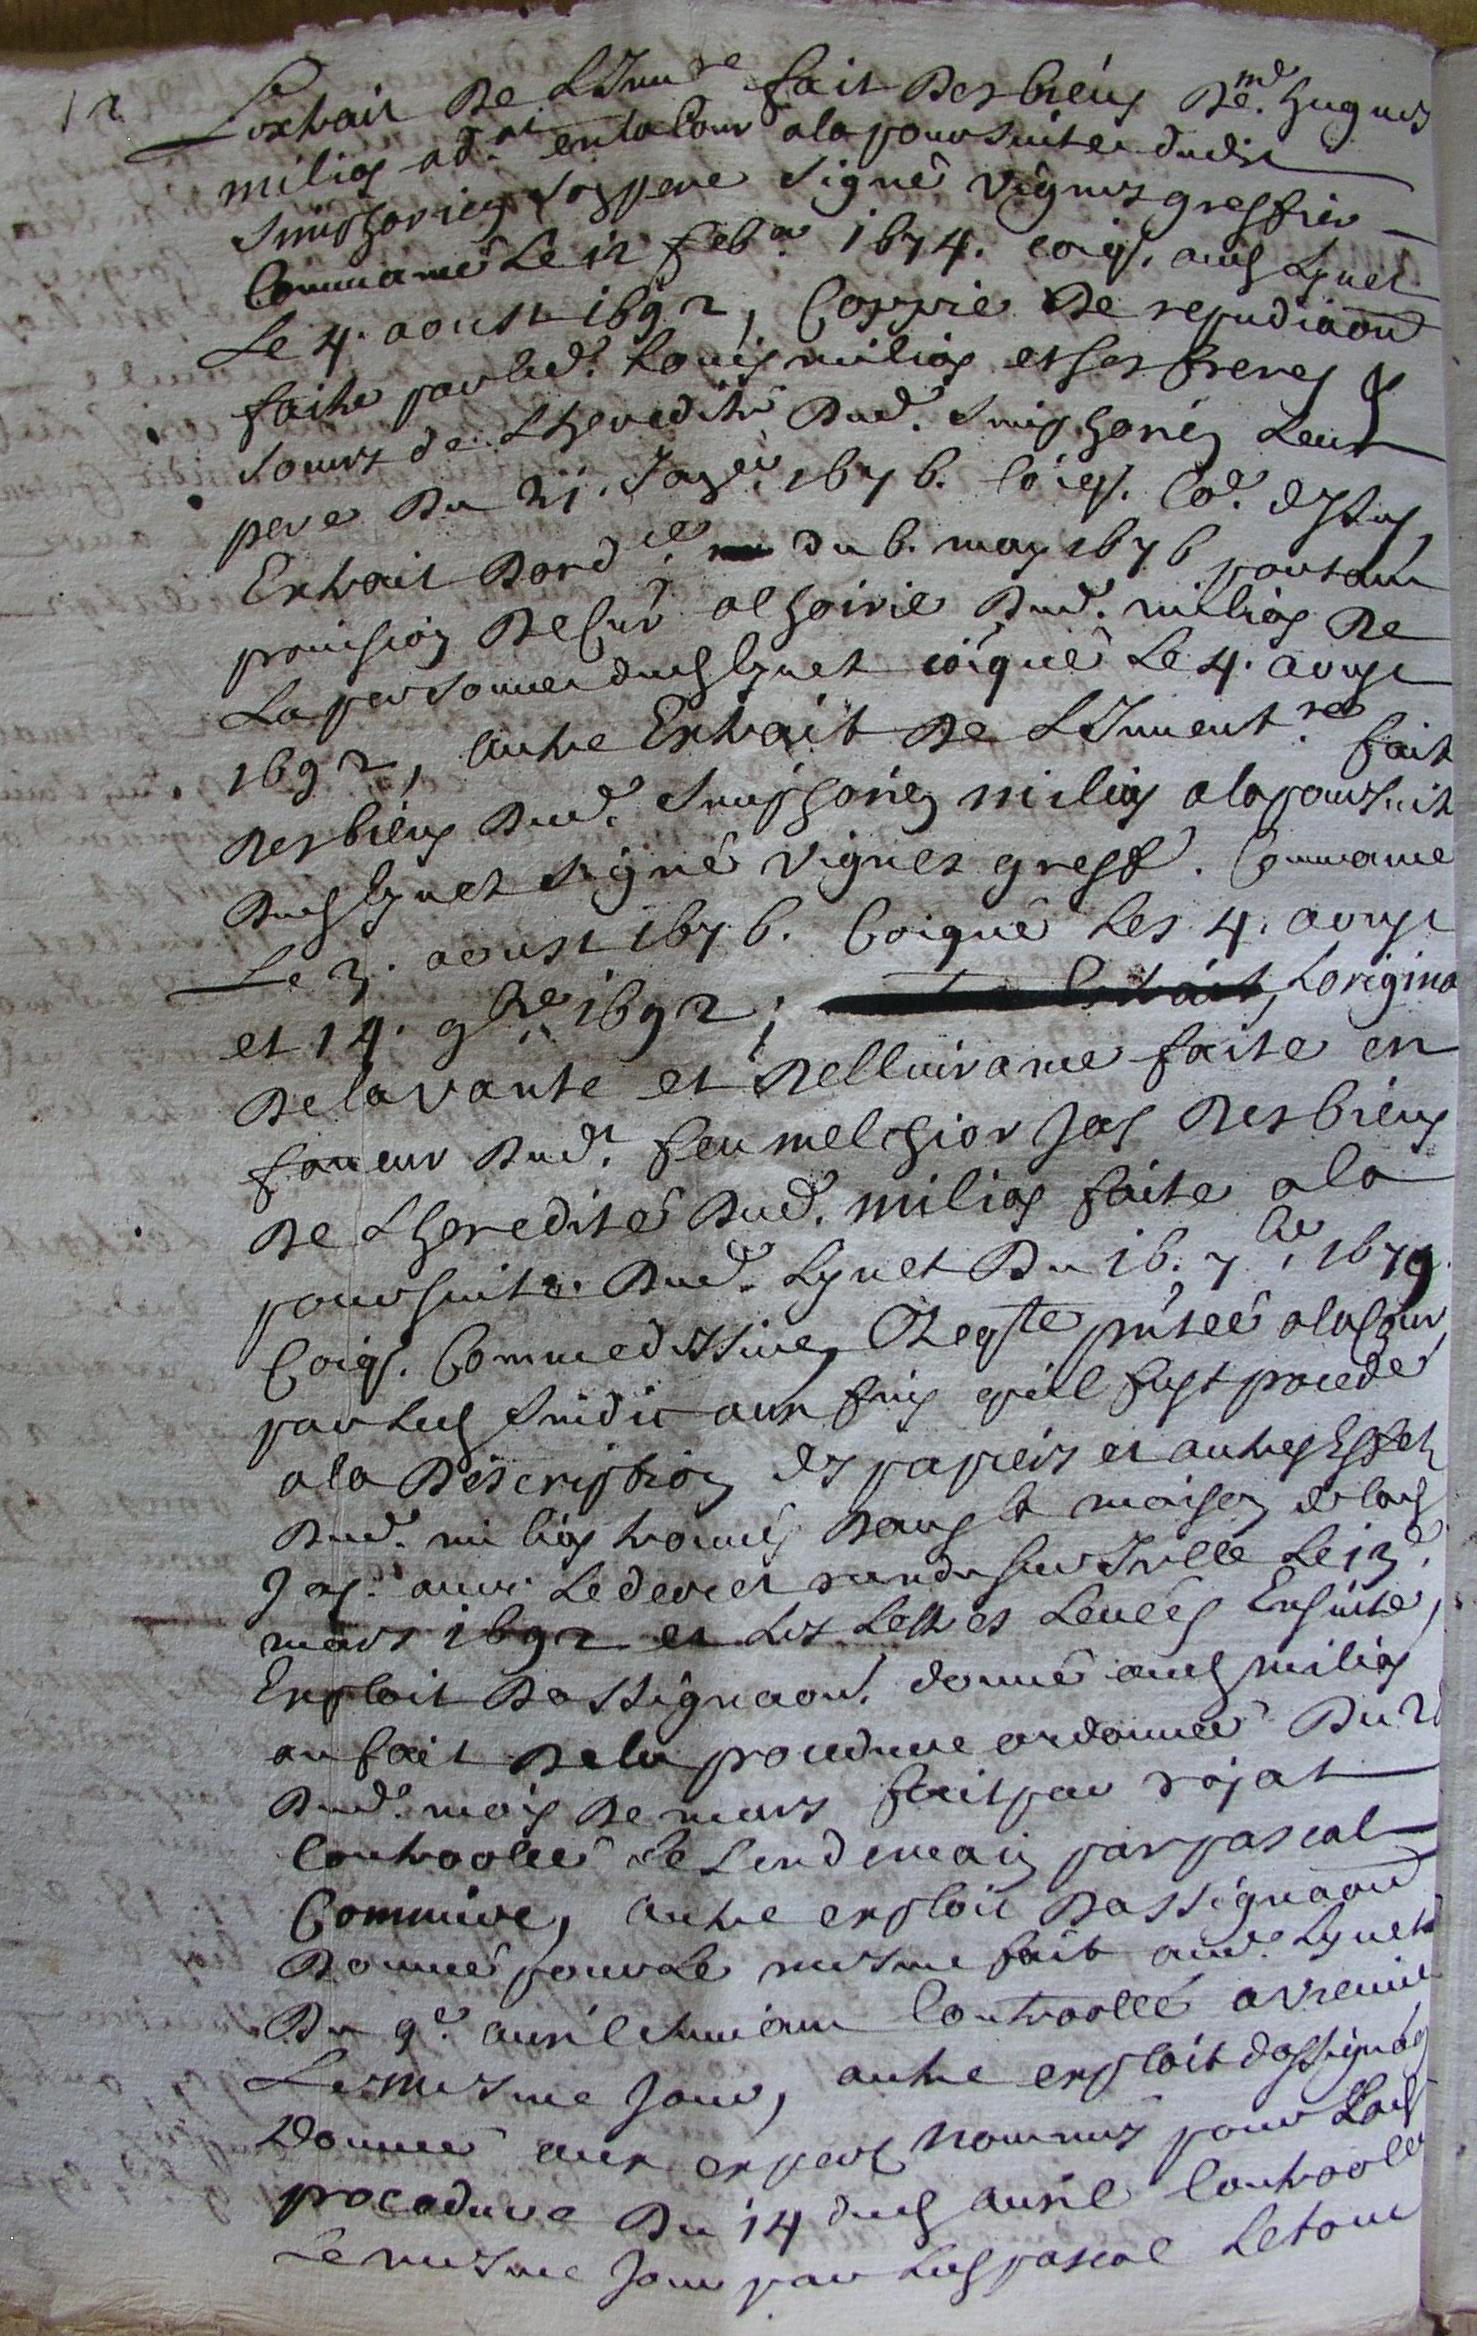 12
Lextrait de L'Inu.re fait des biens de m.e hugues
milias ad.at en la Cour a la poursuite dudit
simphorien son pere signé Vignes greffier
Commancé le 12 feb.er 1674. coiq. aud Lynet
Le 4. aoust 1692, Coppie de repudiaon
faite par led. Louis milias et ses freres &
soeurs de Lheredité dud. simphorien Leur
pere du 21. Janv.er 1676. coiq. Co.e dessus,
Extrait dord.ce du 6. may 1676 portant
provision de Cur.r a lhoirie dud. milias de
La personne dud Lynet coiqué Le 4. aoust
1692, autre Extrait de L'Inuent.re fait
des biens dud. simphorien milias a la poursuite
dud Lynet signé Vignes greff. Commancé
Le 3. aoust 1676. Coiqué les 4. aoust
et 14. 9bre 1692; Lorigina
de la vante et delluirance faite en
faueur dud. feu melchior Jas des biens
de Lheredité dud. milias faite a la
poursuite dud. Lynet du 16. 7bre 1679.
Coiq. Comme dessus, Reqte pntée a la Cour
par led sindic aux fins quil fust procedé
a la description des papiers et autres Effets
dud. milias trouués dans la maison dud
Jas. auec Le decret randu sur Icelle Le 13.e
mars 1692 et les Lettres Leuées Ensuite,
Exploit dassignaon. donné aud milias
au fait de la procedure ordonnée du 2
dud. mois de mars fait par rojat
Controollé le Lendemain par pascal
Commis, autre exploit dassignaon
donné pour le mesme fait aud. Lynet
du 9.e auril suiuant Controollé
Le mesme Jour, autre exploit dassignaon
donné aux expers nommés pour Lad
procedure du 14 dud auril Controollé
Le mesme Jour par Led pascal Le tout